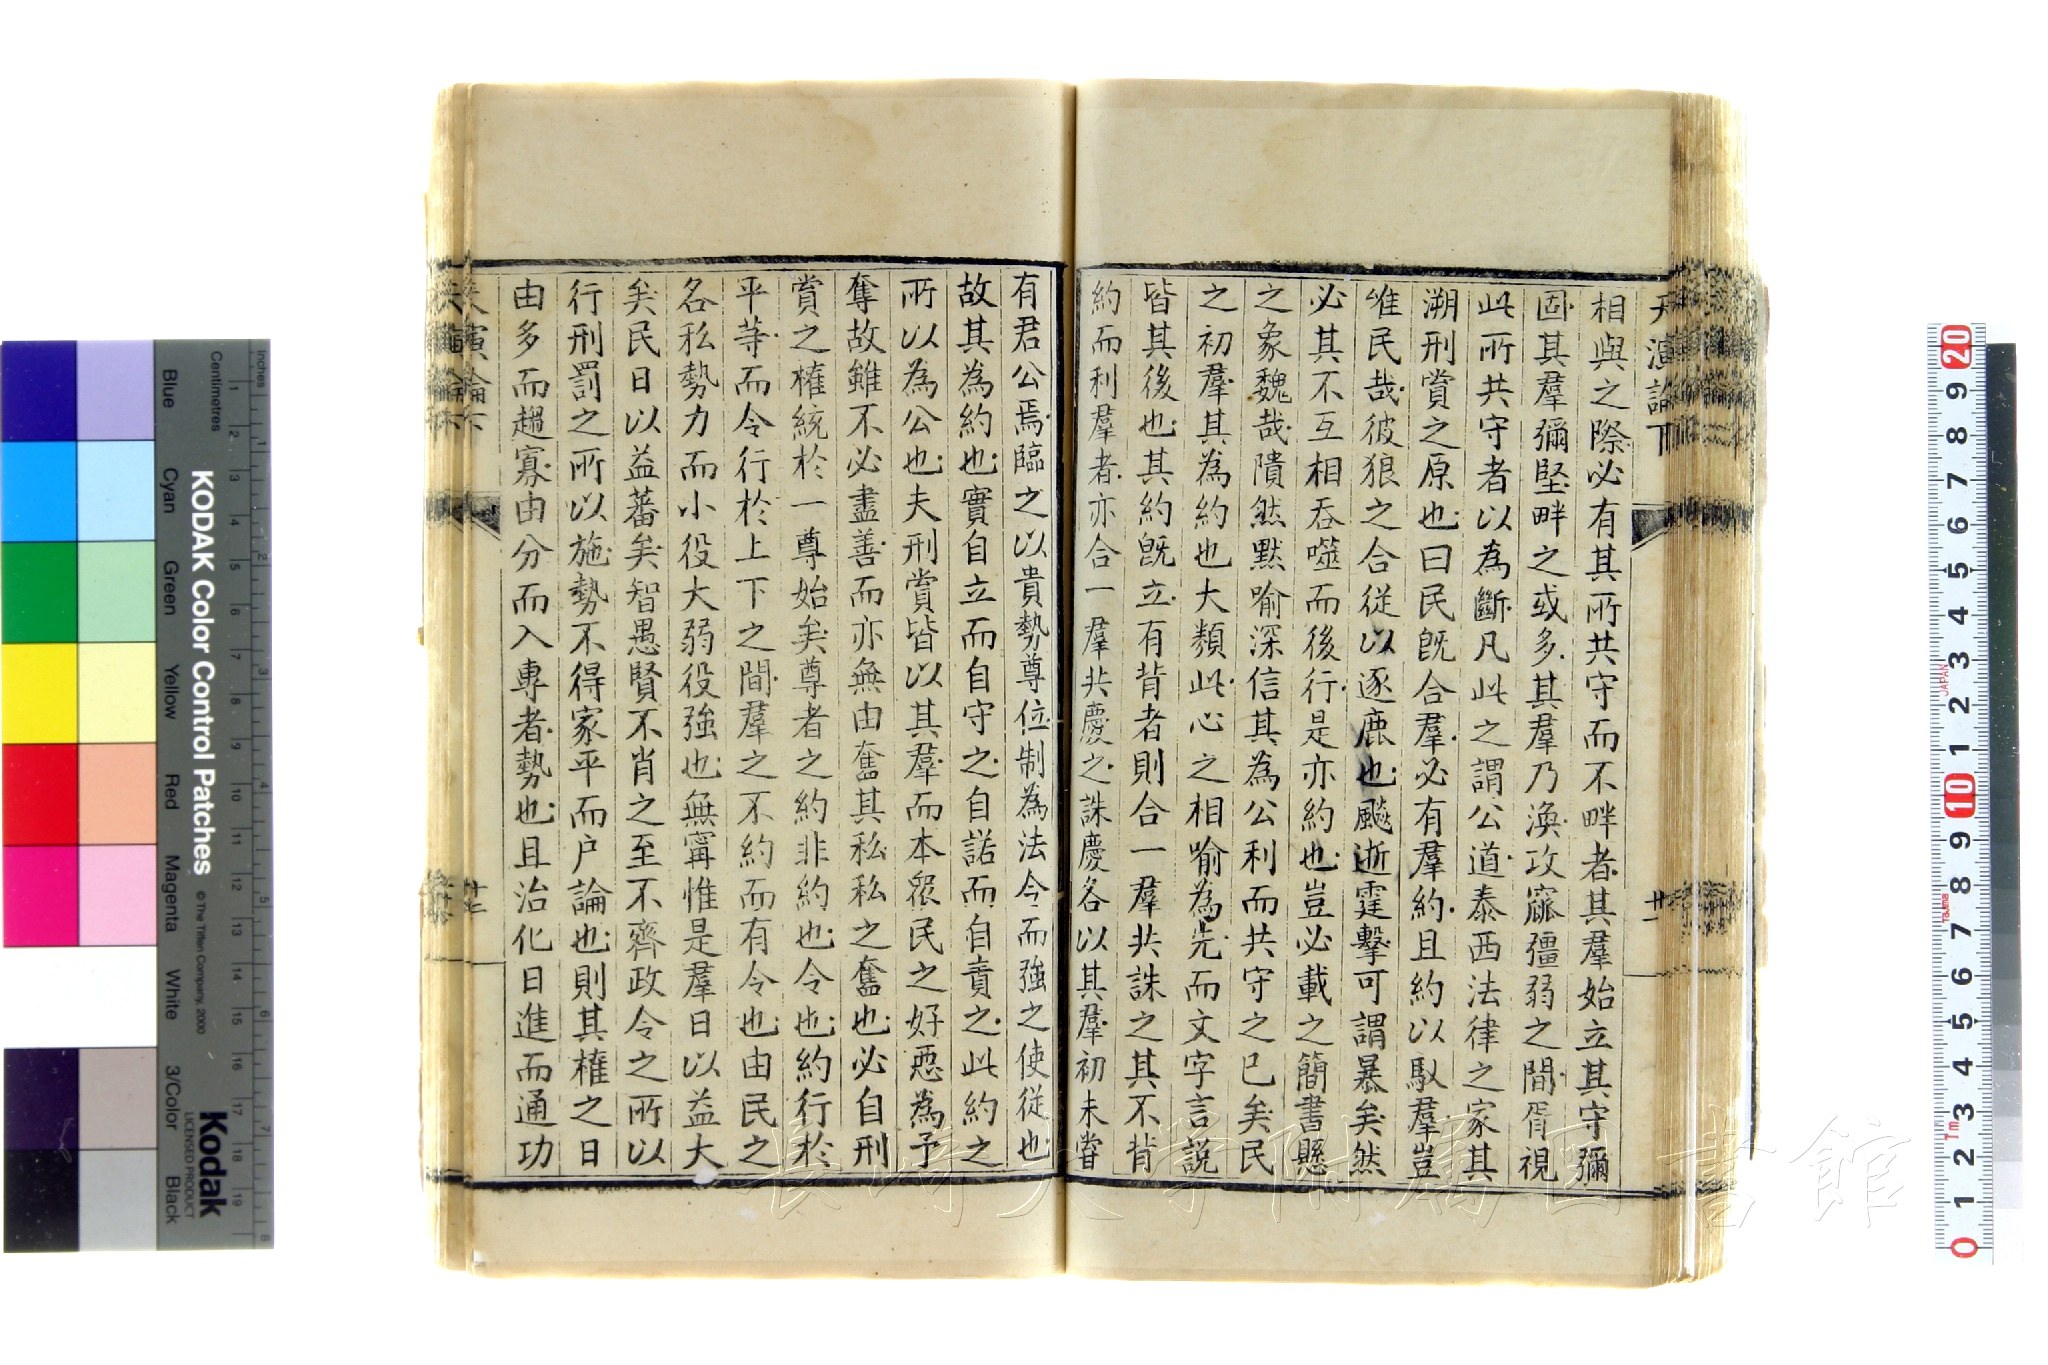 天演論下
廿一
相與之際必有其所共守而不畔者其羣始立其守彌
固其羣彌堅畔之或多其羣乃渙攻窳彊弱之間胥視
此所共守者以為斷凡此之謂公道泰西法律之家其
溯刑賞之原也曰民既合羣必有羣約且約以馭羣豈
唯民哉彼狼之合從以逐鹿也飈逝霆擊可謂暴矣然
必其不互相吞噬而後行是亦約也豈必載之簡書懸
之象魏哉隤然默喻深信其為公利而共守之已矣民
之初羣其為約也大類此心之相喻為先而文字言說
皆其後也其約既立有背者則合一羣共誅之其不背
約而利羣者亦合一羣共慶之誅慶各以其羣初未嘗
有君公焉臨之以貴勢尊位制為法令而強之使從也
故其為約也實自立而自守之自諾而自責之此約之
所以為公也夫刑賞皆以其羣而本眾民之好惡為予
奪故雖不必盡善而亦無由奮其私私之奮也必自刑
賞之權統於一尊始矣尊者之約非約也令也約行於
平等而令行於上下之間羣之不約而有令也由民之
各私勢力而小役大弱役強也無寧惟是羣日以益大
矣民日以益蕃矣智愚賢不肖之至不齊政令之所以
行刑罰之所以施勢不得家平而户論也則其權之日
由多而趨寡由分而入專者勢也且治化日進而通功
KODAK Color Control Patches
© The Tiffen Company, 2000
Kodak
LICENSED PRODUCT
Inches
Centimetres
Blue
Cyan
Green
Yellow
Red
Magenta
White
3/Color
Black
長崎大学附属図書館